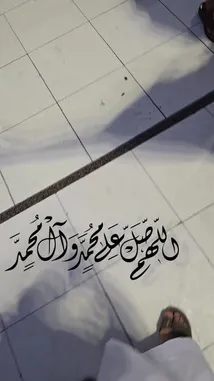 اللّهُم صَلِّ عَلى مُحمَّدٍ وَآلْ مُحمَّدٍ